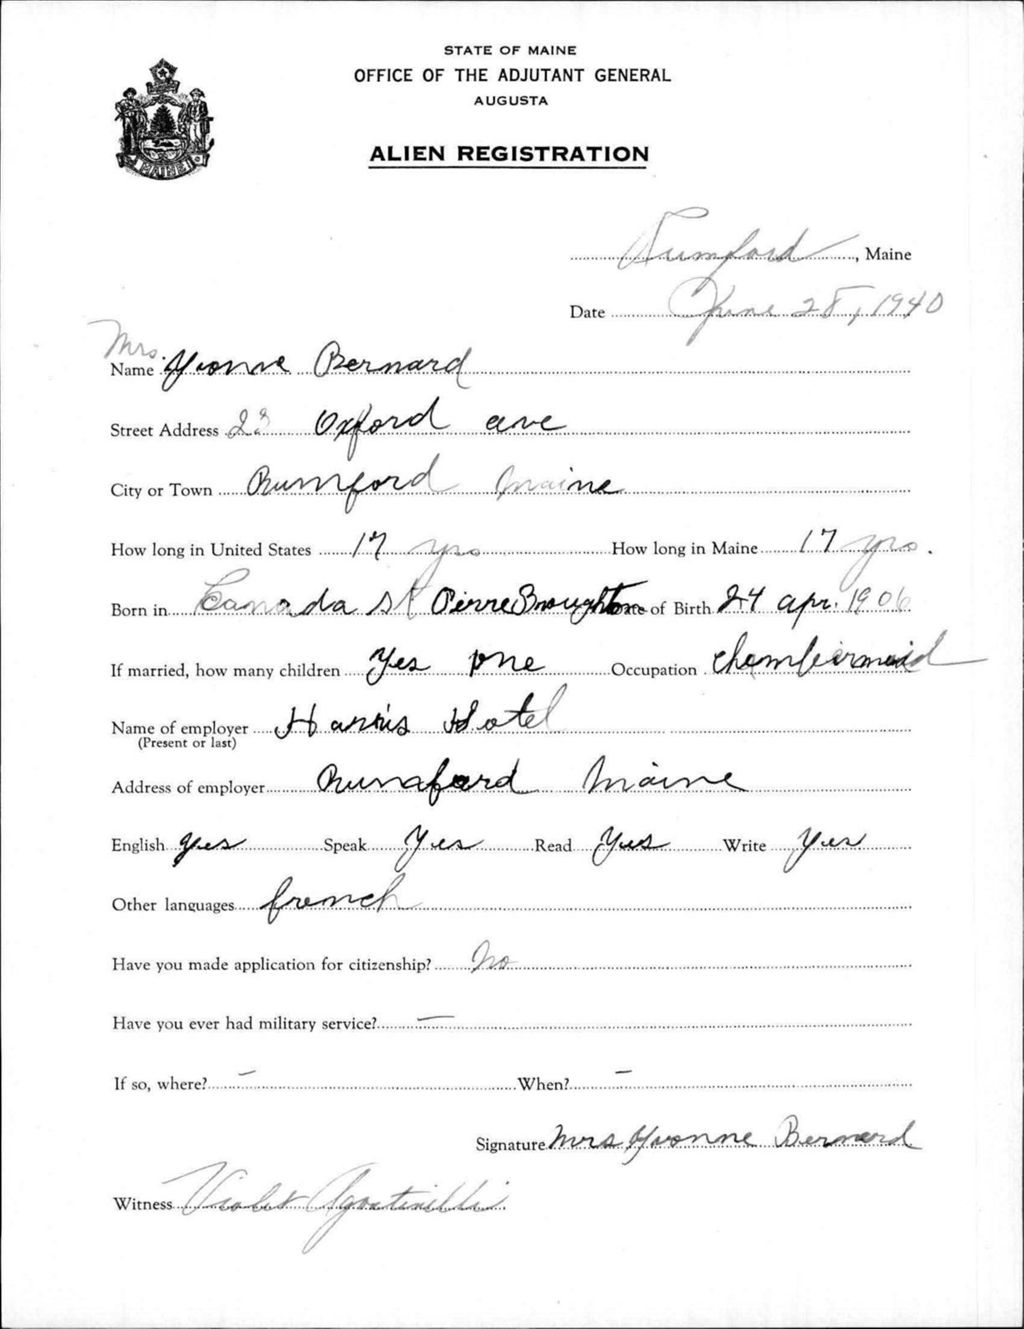 STATE OF MAINE
OFFICE OF THE ADJUTANT GENERAL
AUGUSTA
ALIEN REGISTRATION
MAINE
Rumford, Maine
Date June 28, 1940
Mrs
Name Yvonne Bernard
Street Address 23 Oxford ave
City or Town Rumford Maine
How long in United States 17 yrs How long in Maine 17 yrs.
Born in Canada St Pierre Broughton Date of Birth 24 apr. 1906
If married, how many children Yes one Occupation chambermaid
Name of employer Harris Hotel
(Present or last)
Address of employer Rumford Maine
English yes Speak Yes Read Yes Write Yes
Other languages french
Have you made application for citizenship? No
Have you ever had military service? —
If so, where? — When? —
Signature Mrs Yvonne Bernard
Witness Violet Agostinelli